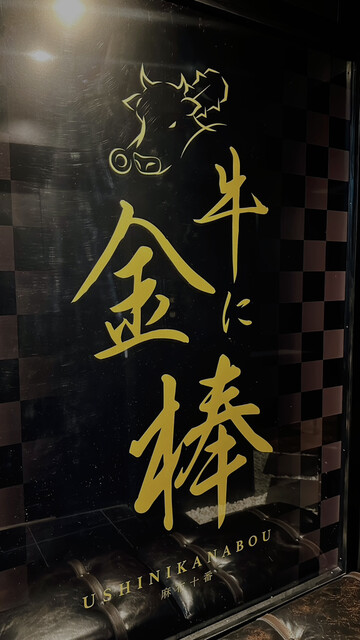 牛に
金棒
USHINIKANABOU
麻布十番